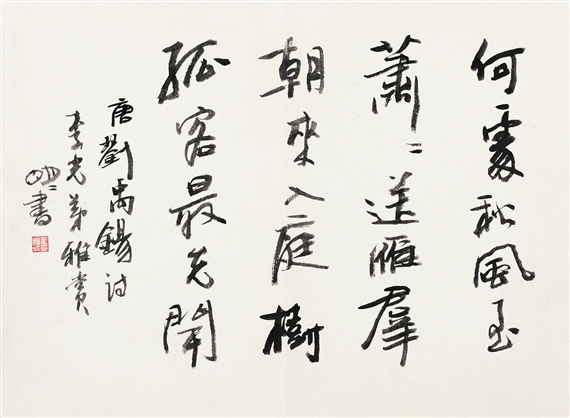 何處秋風至
蕭〻送雁羣
朝來入庭樹
孤客最先聞
唐劉禹錫詩
李光弟雅賞
書